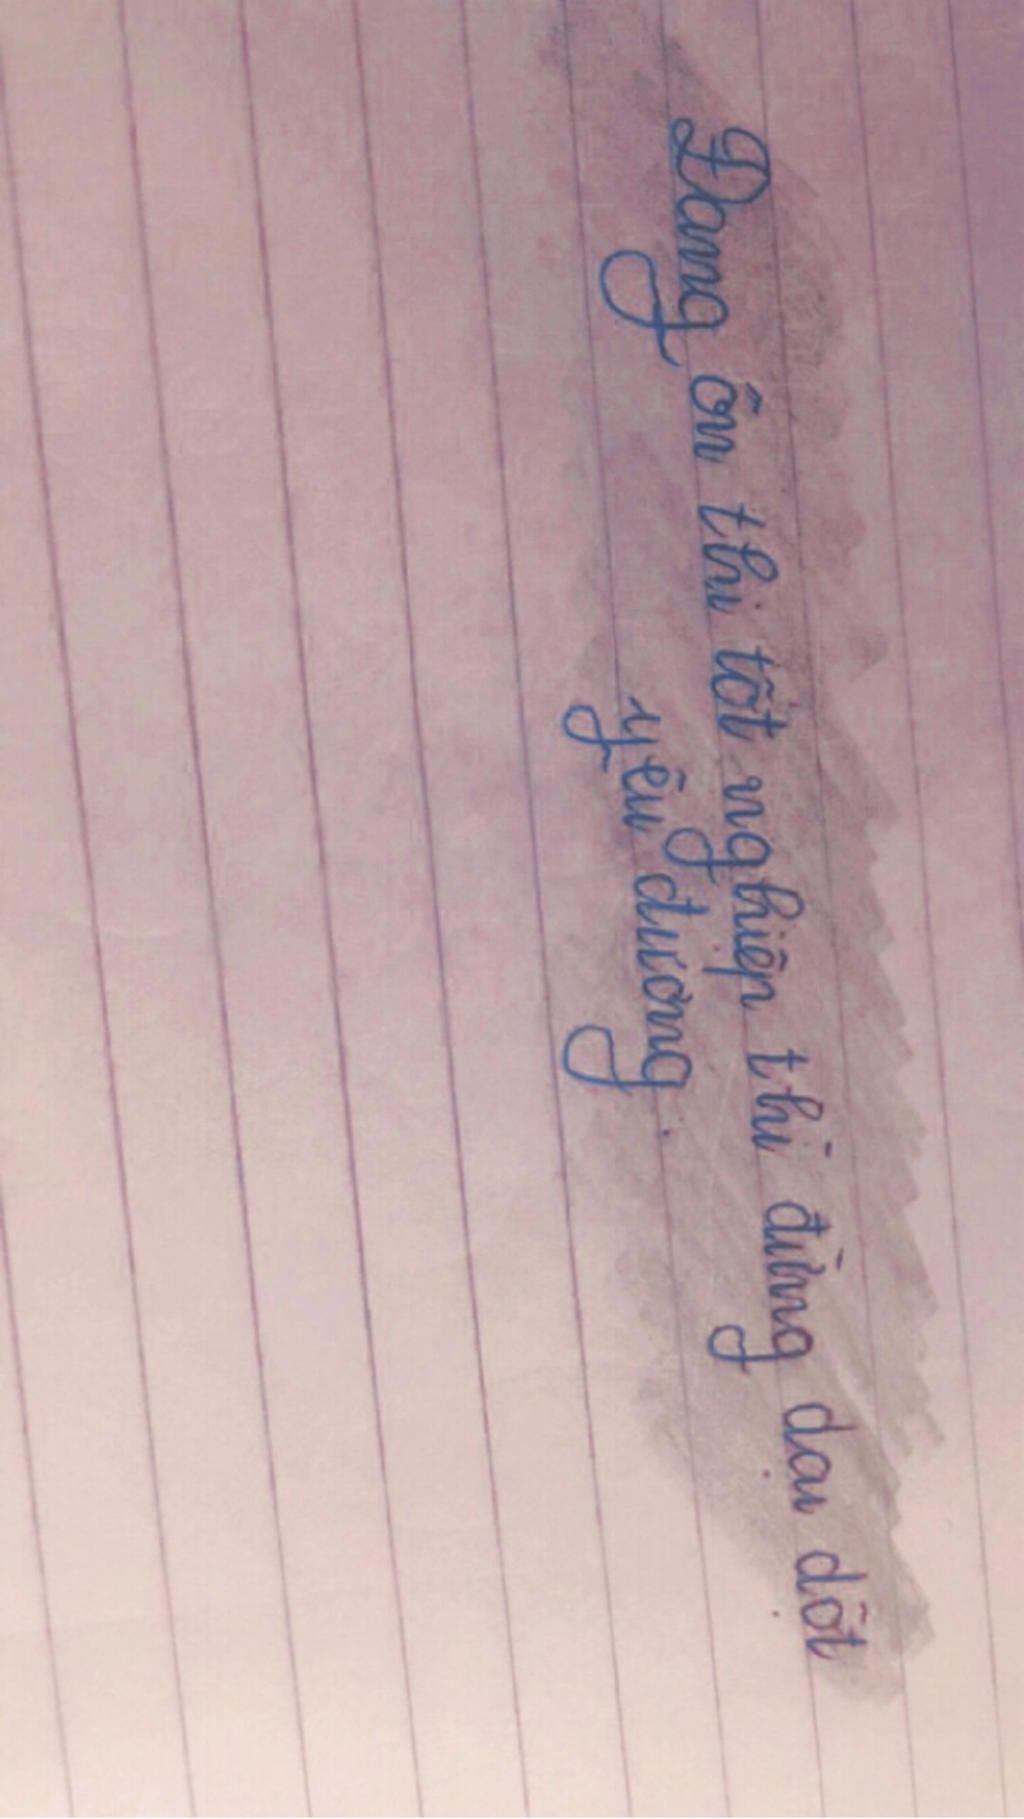 Đang ôn thi tốt nghiệp thì đừng dại dột
yêu đương.